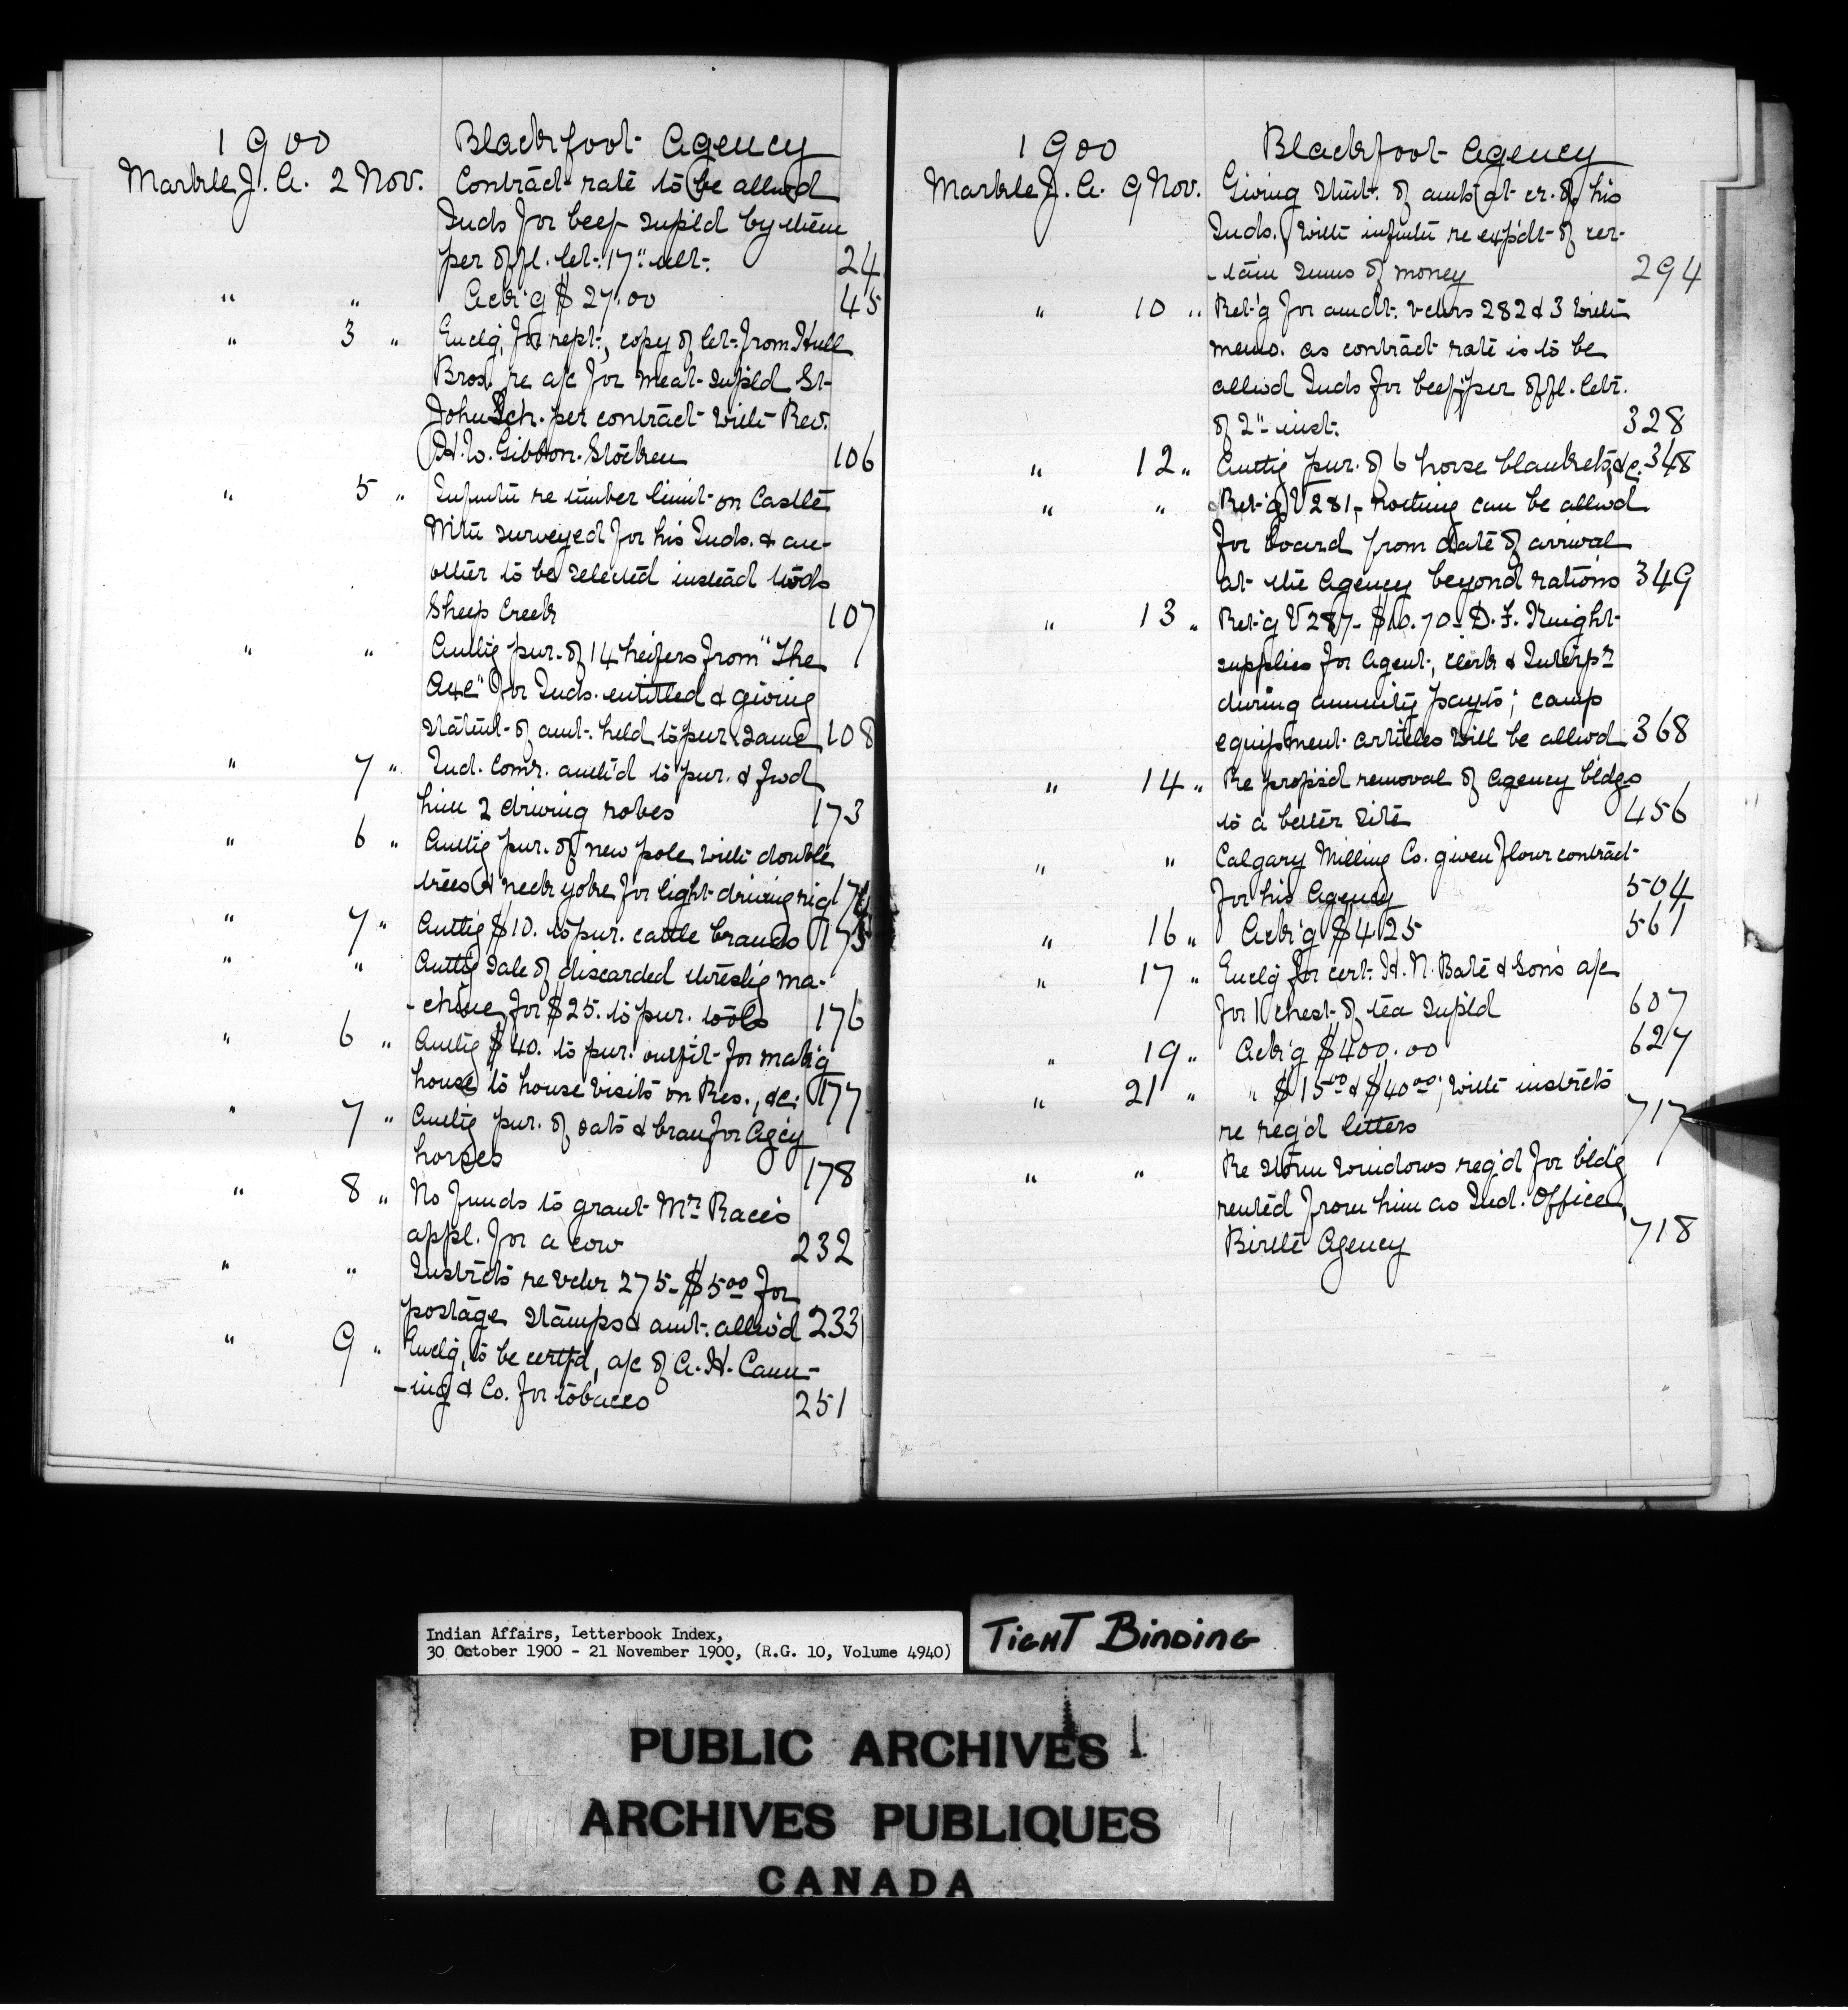 1900 Blackfoot Agency
Markle J. A. 2 Nov. Contract rate to be allwd
Inds for beef supld by them
per offl. let. 17" ult. 24
" " Ack'g $27.00 45
" 3 " Enclg, for rept., copy of let. from Hull
Bros. re a/c for meat supld St
John Sch. per contract with Rev.
H. W. Gibbon-Stocken 106
" 5 " Infmtn re timber limit on Castle
Mtn surveyed for his Inds. & an-
other to be selected instead twds
Sheep Creek 107
" " Authg pur. of 14 heifers from "The
Axe" for Inds. entitled & giving
statmt of amt. held to pur. same 108
" 7 " Ind. Comr. auth'd to pur. & fwd
him 2 driving robes 173
" 6 " Authg pur. of new pole with double
trees & neck yoke for light driving rig 174
" 7 " Authg $10. to pur. cattle brands 175
" " Authg sale of discarded threshg ma-
-chine for $25. to pur. tools 176
" 6 " Authg $40. to pur. outfit for mak'g
house to house visits on Res., &c. 177
" 7 " Authg pur. of oats & bran for Agcy
horses 178
" 8 " No funds to grant Mr Race's
appl. for a cow 232
" " Instrcts re vchr 275 - $5.00 for
postage stamps & amt. allw'd 233
" 9 " Enclg, to be certf'd, a/c of A. H. Cann-
-ing & Co. for tobacco 251
1900 Blackfoot Agency
Markle J. A. 9 Nov. Giving stmt. of amts at cr. of his
Inds. with infmtn re exp'dt of cer-
-tain sums of money 294
" 10 " Ret'g for amdt. vchrs 282 & 3 with
memo. as contract rate is to be
allwd Inds for beef per offl. letr.
of 2" inst. 328
" 12 " Authg pur. of 6 horse blankets, &c. 348
" " Ret'g V 281 - nothing can be allwd
for board from date of arrival
at the Agency beyond rations 349
" 13 " Ret'g V 287 - $16.70 - D. F. Knight
supplies for Agent, clerk & Interpr
during annuity payts; camp
equipment articles will be allwd 368
" 14 " Re props'd removal of Agency bldgs
to a better site 456
" " Calgary Milling Co. given flour contract
for his Agency 504
" 16 " Ack'g $4.25 561
" 17 " Enclg for cert. H. N. Bate & Sons a/c
for 1 chest of tea supld 607
" 19 " Ack'g $400.00 627
" 21 " " $15.00 & $40.00; with instrcts
re reg'd letters 717
" " Re storm windows req'd for bldg
rented from him as Ind. Office
Birtle Agency 718
Indian Affairs, Letterbook Index,
30 October 1900 - 21 November 1900, (R.G. 10, Volume 4940)
TIGHT BINDING
PUBLIC ARCHIVES
ARCHIVES PUBLIQUES
CANADA